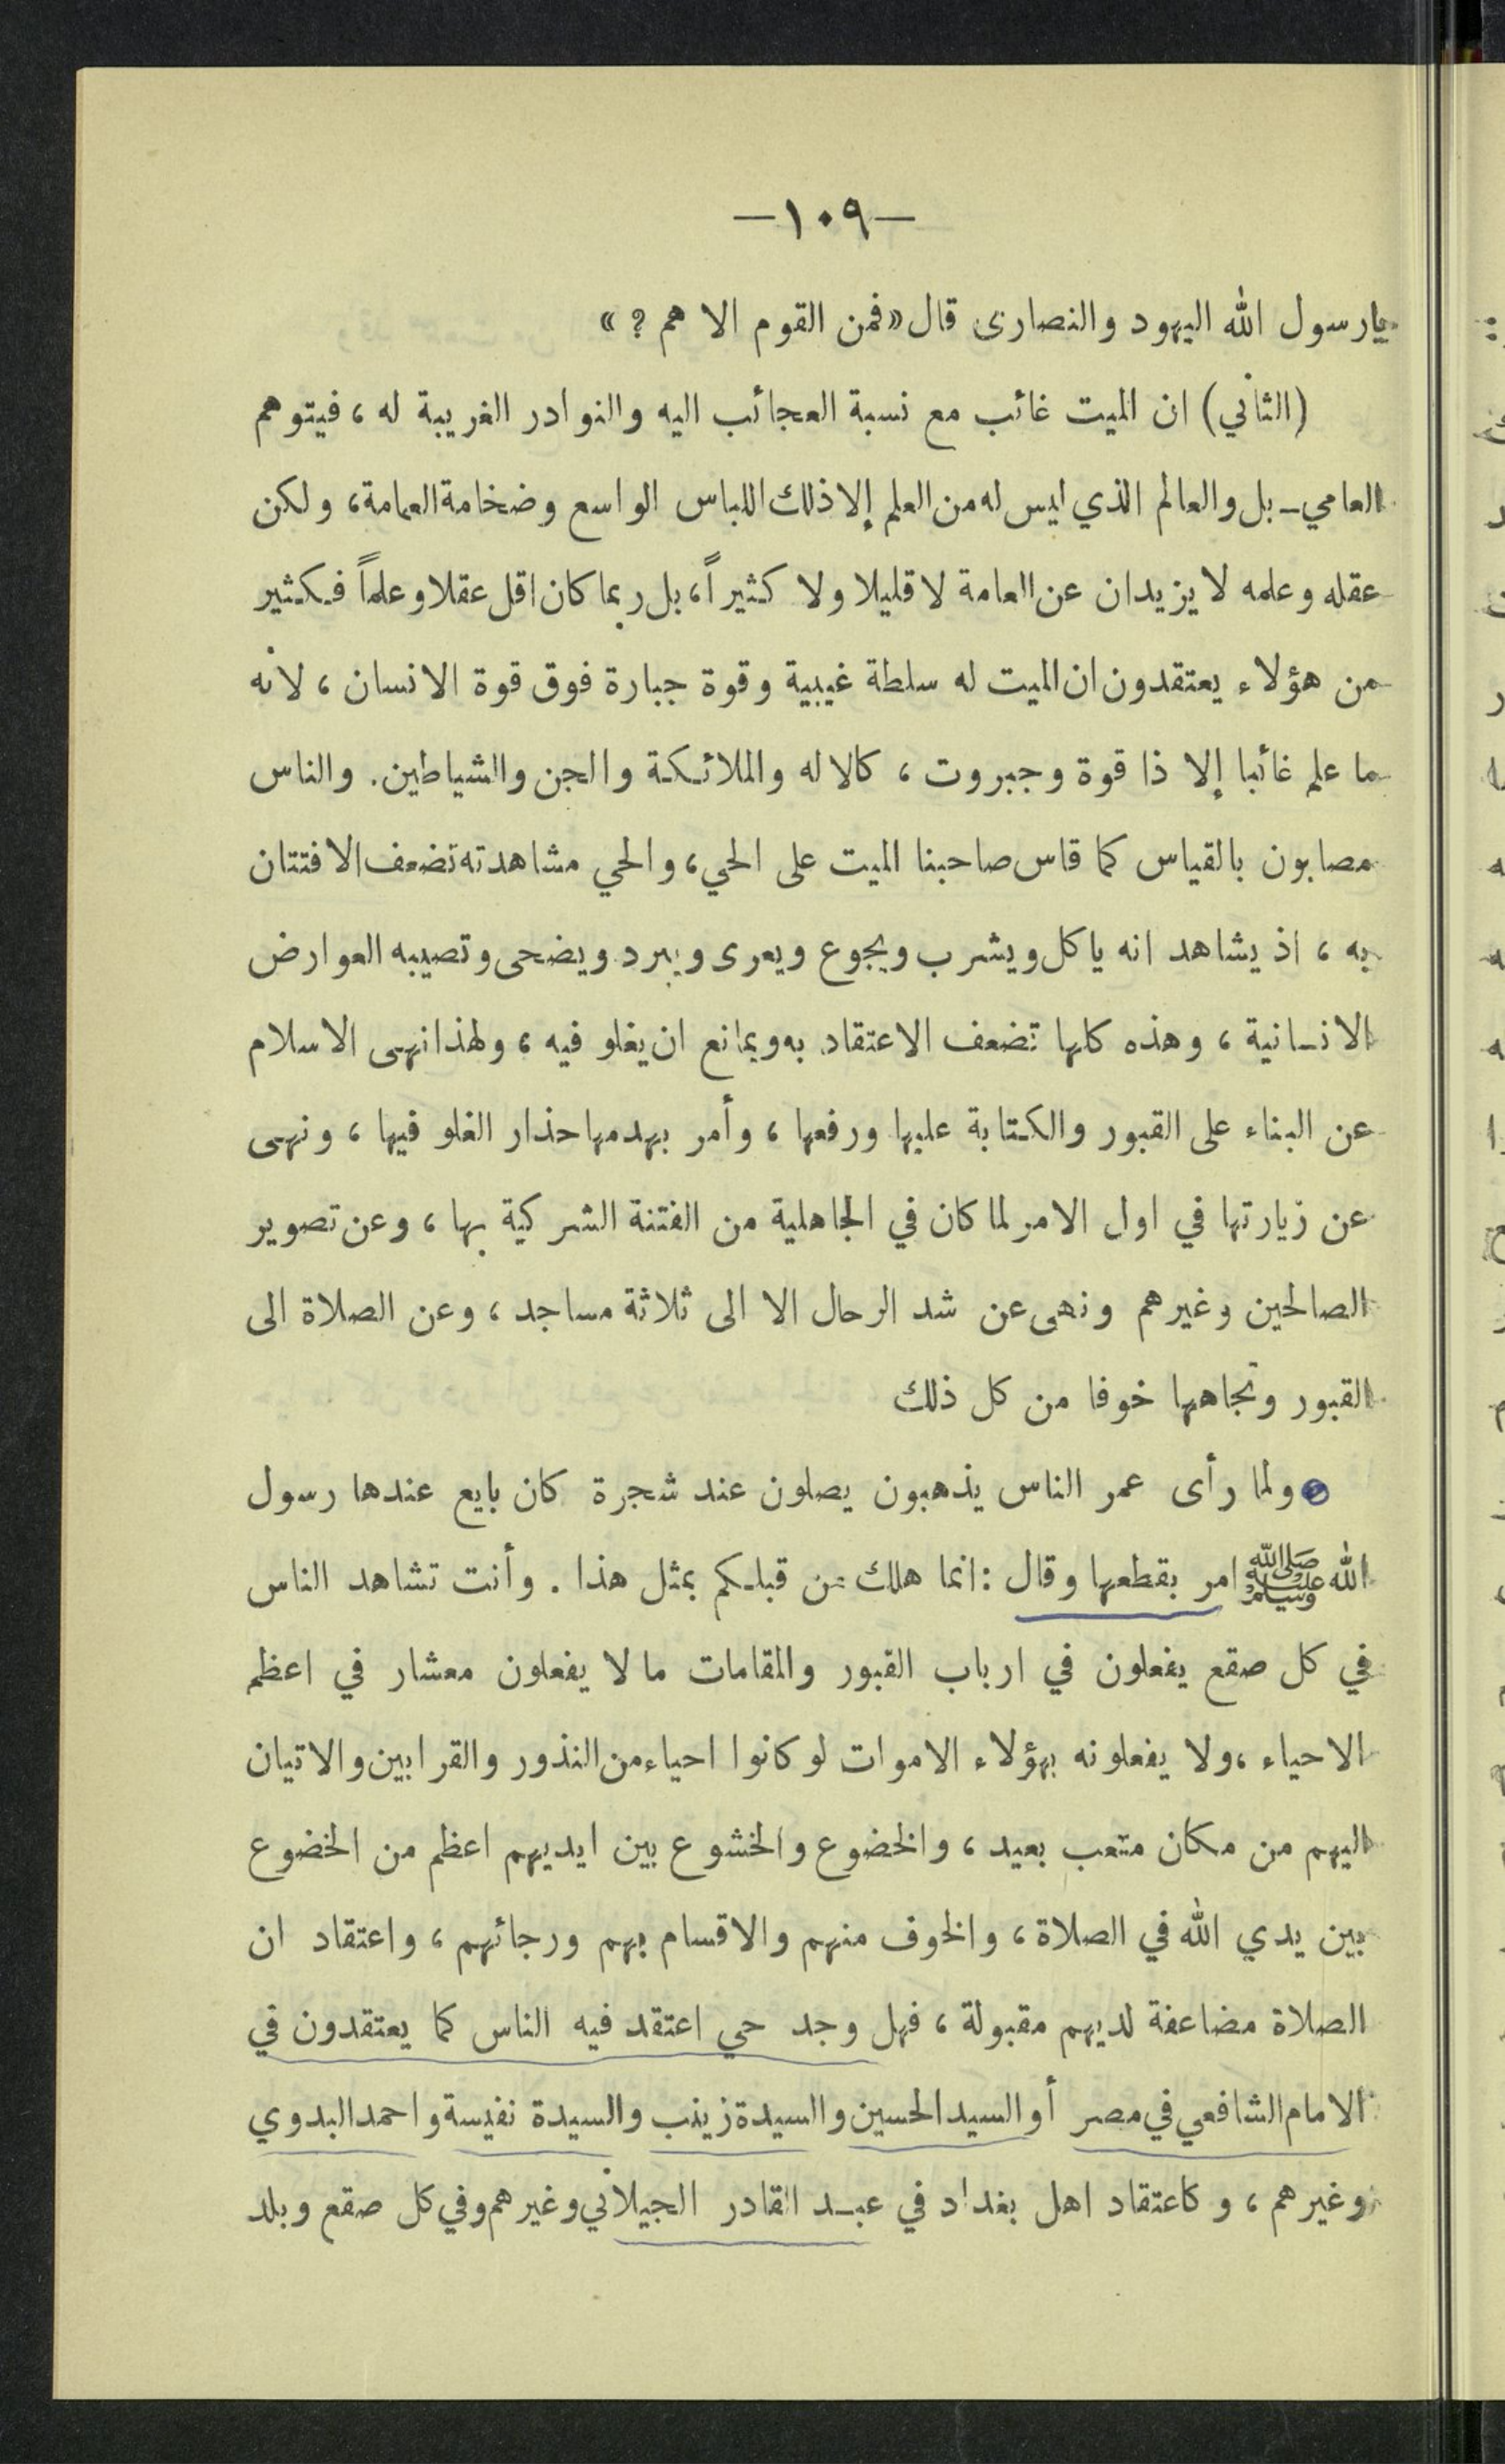 —١٠٩—
يارسول الله اليهود والنصارى قال «فمن القوم الا هم ؟ »
(الثاني) ان الميت غائب مع نسبة العجائب اليه والنوادر الغريبة له ، فيتوهم
العامي ـ بل والعالم الذي ليس له من العلم إلا ذلك اللباس الواسع وضخامة العمامة، ولكن
عقله وعلمه لا يزيدان عن العامة لا قليلا ولا كثيراً، بل ربما كان اقل عقلا وعلماً فكثير
من هؤلاء يعتقدون ان الميت له سلطة غيبية وقوة جبارة فوق قوة الانسان ، لانه
ما علم غائبا إلا ذا قوة وجبروت ، كالاله والملائكة والجن والشياطين. والناس
مصابون بالقياس كما قاس صاحبنا الميت على الحي، والحي مشاهدته تضعف الافتتان
به ، اذ يشاهد انه ياكل ويشرب ويجوع ويعرى ويبرد ويضحى وتصيبه العوارض
الانسانية ، وهذه كلها تضعف الاعتقاد به وبمانع ان يغلو فيه ، ولهذا نهى الاسلام
عن البناء على القبور والكتابة عليها ورفعها ، وأمر بهدمها حذار الغلو فيها ، ونهى
عن زيارتها في اول الامر لما كان في الجاهلية من الفتنة الشركية بها ، وعن تصوير
الصالحين وغيرهم ونهى عن شد الرحال الا الى ثلاثة مساجد ، وعن الصلاة الى
القبور وتجاهها خوفا من كل ذلك
ولما رأى عمر الناس يذهبون يصلون عند شجرة كان بايع عندها رسول
الله ﷺ امر بقطعها وقال : انما هلك من قبلكم بمثل هذا . وأنت تشاهد الناس
في كل صقع يفعلون في ارباب القبور والمقامات ما لا يفعلون معشار في اعظم
الاحياء ،ولا يفعلونه بهؤلاء الاموات لو كانوا احياء من النذور والقرابين والاتيان
اليهم من مكان متعب بعيد ، والخضوع والخشوع بين ايديهم اعظم من الخضوع
بين يدي الله في الصلاة ، والخوف منهم والاقسام بهم ورجائهم ، واعتقاد ان
الصلاة مضاعفة لديهم مقبولة ، فهل وجد حي اعتقد فيه الناس كما يعتقدون في
الامام الشافعي في مصر أو السيد الحسين والسيدة زينب والسيدة نفيسة واحمد البدوي
وغيرهم ، وكاعتقاد اهل بغداد في عبد القادر الجيلاني وغيرهم وفي كل صقع وبلد